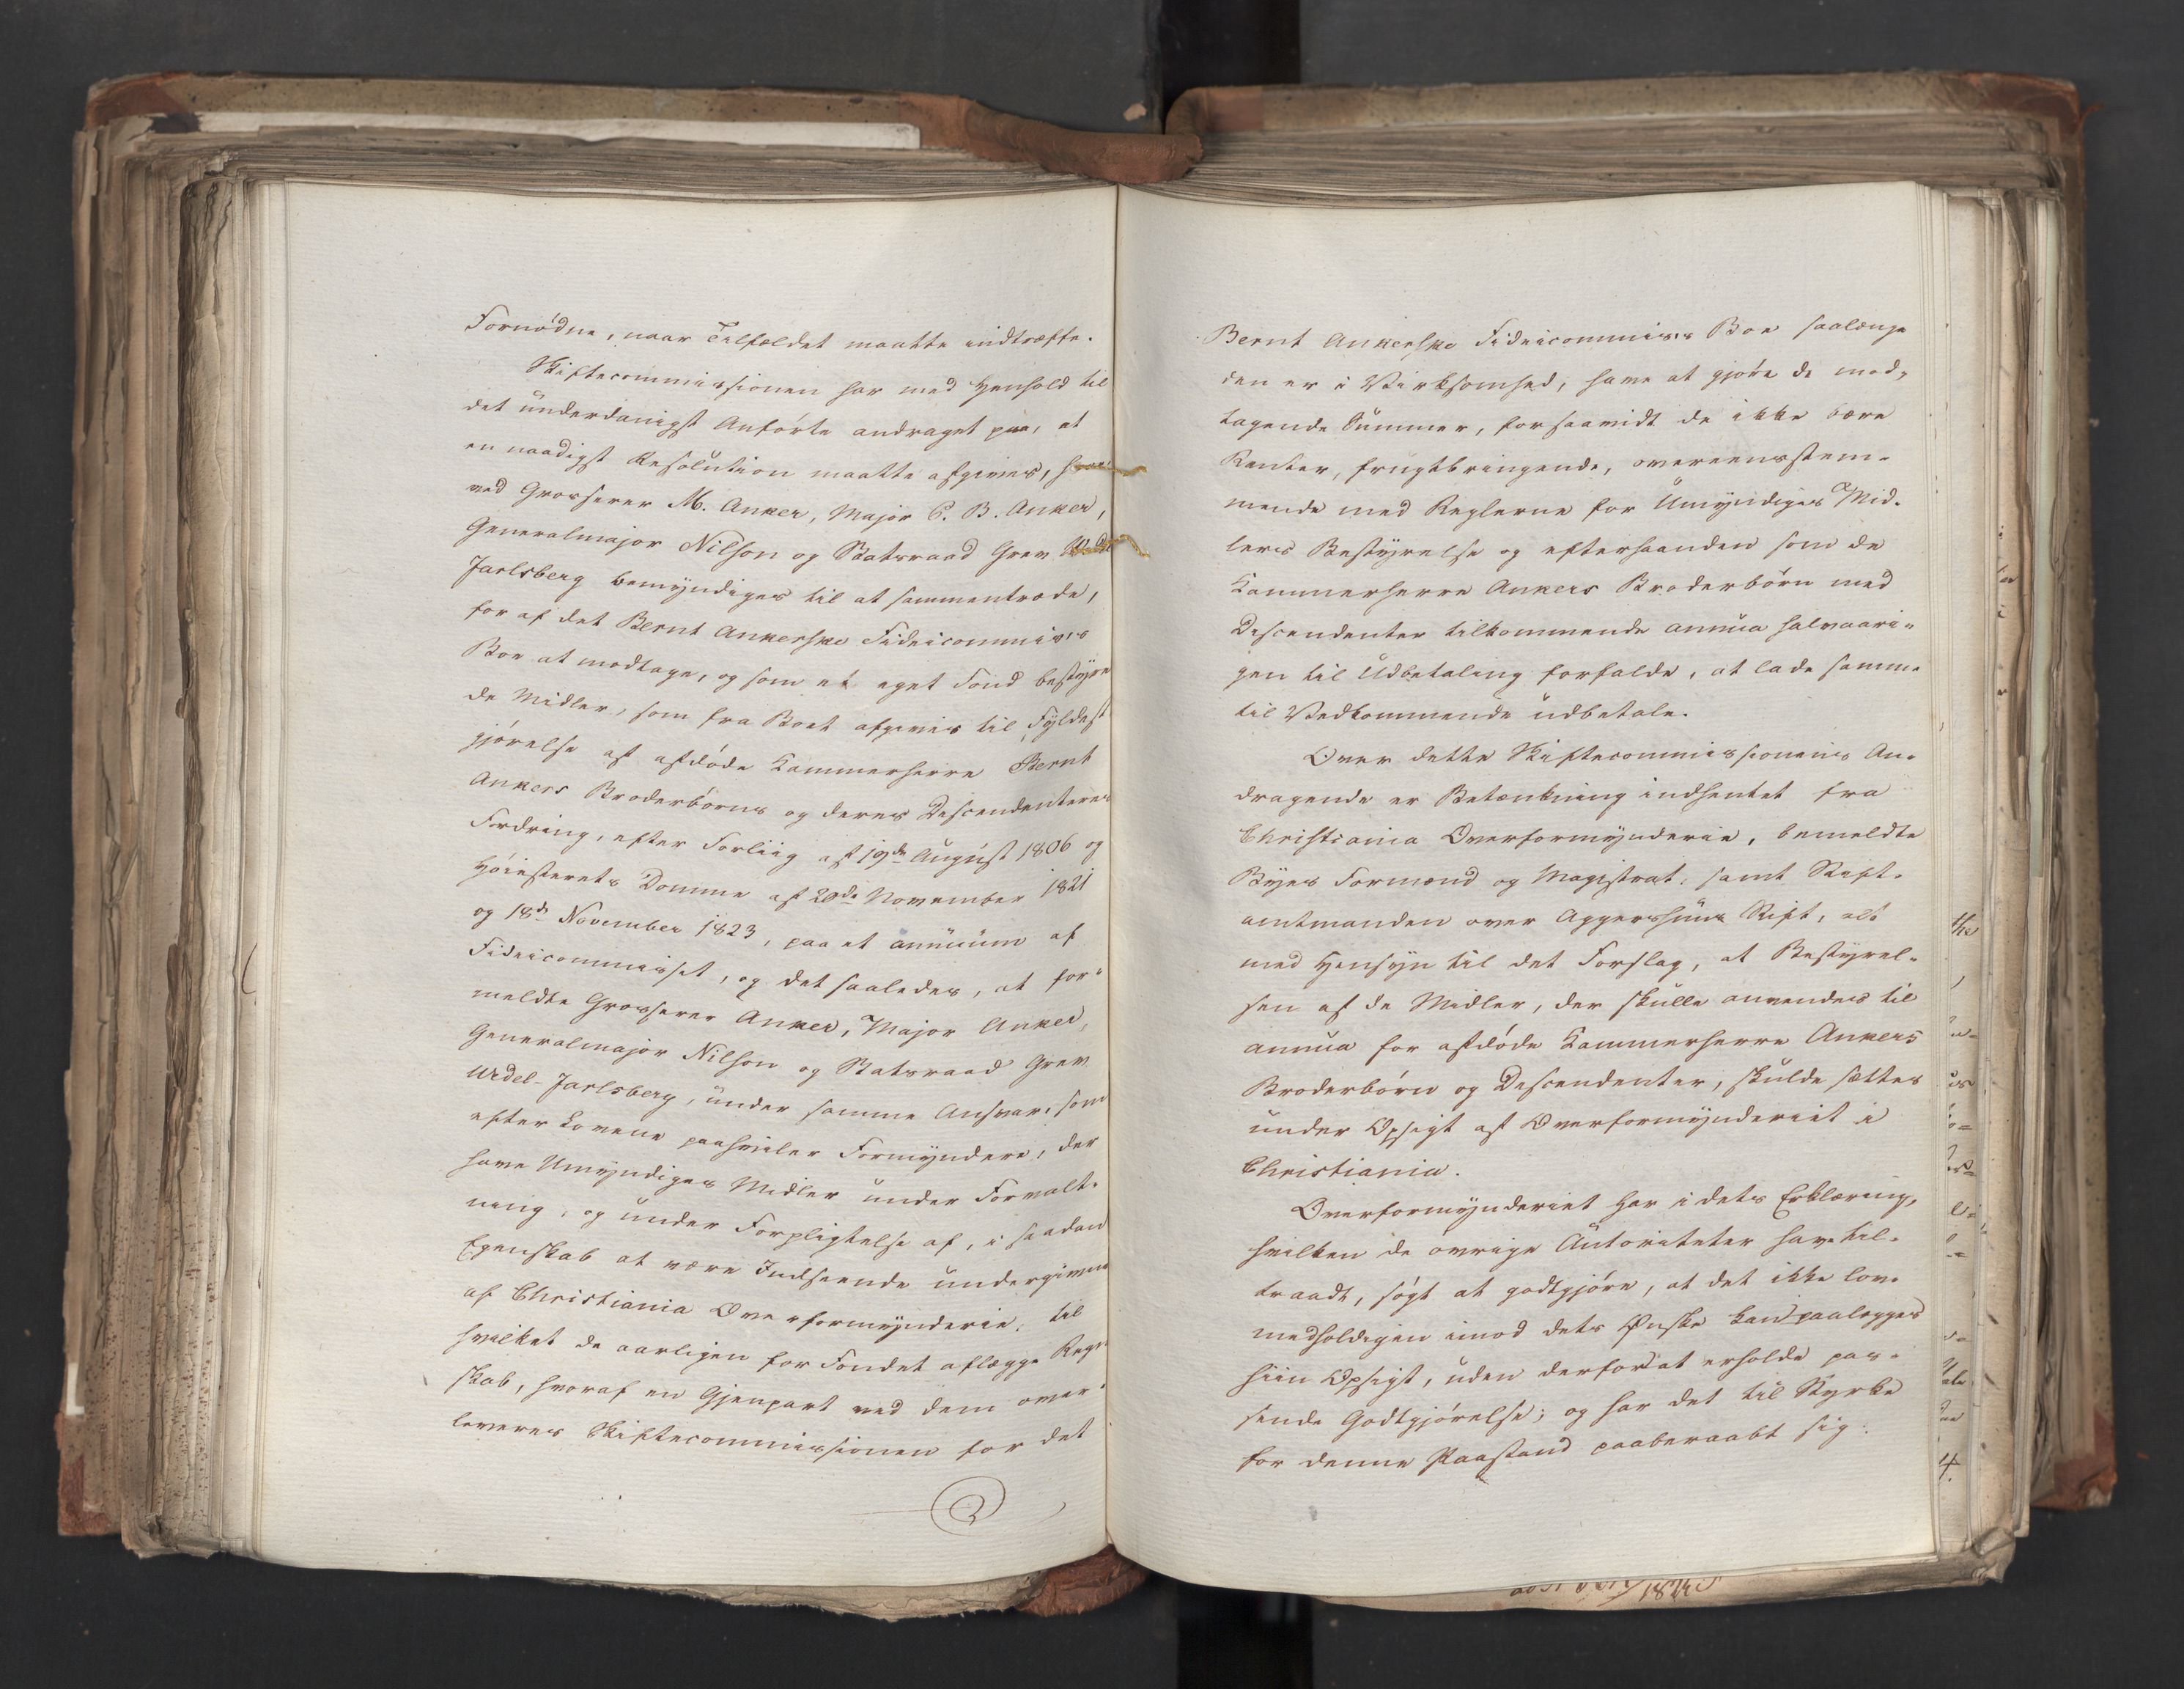 Fornødne, naar Tilfældet maatte indtræffe.
Skiftecommissionen har med Henhold til
det underdanigst Anførte andraget paa, at
en naadigst Resolution maatte afgives, hvor-
ved Grosserer M. Anker, Major P. B. Anker,
Generalmajor Nilson og Statsraad Grev Wedel
Jarlsberg bemyndiges til at sammentræde,
for af det Bernt Ankerske Fideicommis's
Boe at modtage, og som et eget Fond bestyre
de Midler, som fra Boet afgives til Fyldest
gjørelse af afdøde Kammerherre Bernt
Ankers Broderbørns og deres Descendenters
Fordring, efter Forliig af 19de August 1806 og
Høiesterets Domme af 20de November 1821
og 18de November 1823, paa et annuum af
Fideicommisset, og det saaledes, at for-
meldte Grosserer Anker, Major Anker,
Generalmajor Nilson og Statsraad Grev
Wedel-Jarlsberg, under samme Ansvar, som
efter Lovene paahviler Formyndere, der
have Umyndiges Midler under Forvalt-
ning, og under Forpligtelse af, i saadan
Egenskab at være Indseende undergivne
af Christiania Overformynderie, til
hvilket de aarligen for Fondet aflægge Regn
skab, hvoraf en Gjenpart ved dem over-
leveres Skiftecommissionen for det
Bernt Ankerske Fideicommis's Boe saalænge
den er i Virksomhed, have at gjøre de mod-
tagende Summer, forsaavidt de ikke bære
Renter, frugtbringende, overeensstem-
mende med Reglerne for Umyndiges Mid-
lers Bestyrelse og efterhaanden som de
Kammerherre Ankers Broderbørn med
Descendenter tilkommende annua halvaari-
gen til Udbetaling forfalde, at lade samme
til Vedkommende udbetale.
Over dette Skiftecommissionens An-
dragende er Betænkning indhentet fra
Christiania Overformynderie, bemeldte
Byes Formænd og Magistrat, samt Stift-
amtmanden over Aggershuus Stift, alt
med Hensyn til det Forslag, at Bestyrel-
sen af de Midler, der skulle anvendes til
annua for afdøde Kammerherre Ankers
Broderbørn og Descendenter, skulde sættes
under Opsigt af Overformynderiet i
Christiania.
Overformynderiet har i dets Erklæring,
hvilken de øvrige Autoriteter have til-
traadt, søgt at godtgjøre, at det ikke lov-
medholdigen imod dets Ønske kan paalægges
hiin Opsigt, uden derfor at erholde pas-
sende Godtgjørelse; og har det til Styrke
for denne Paastand paaberaabt sig: